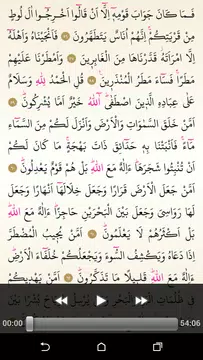 فَمَا كَانَ جَوَابَ قَوْمِهِ إِلَّا أَنْ قَالُوا أَخْرِجُوا آلَ لُوطٍ
مِنْ قَرْيَتِكُمْ إِنَّهُمْ أُنَاسٌ يَتَطَهَّرُونَ فَأَنْجَيْنَاهُ وَأَهْلَهُ
إِلَّا امْرَأَتَهُ قَدَّرْنَاهَا مِنَ الْغَابِرِينَ وَأَمْطَرْنَا عَلَيْهِمْ
مَطَرًا فَسَاءَ مَطَرُ الْمُنْذَرِينَ قُلِ الْحَمْدُ لِلَّهِ وَسَلَامٌ
عَلَى عِبَادِهِ الَّذِينَ اصْطَفَى آللَّهُ خَيْرٌ أَمَّا يُشْرِكُونَ
أَمَّنْ خَلَقَ السَّمَوَاتِ وَالْأَرْضَ وَأَنْزَلَ لَكُمْ مِنَ السَّمَاءِ
مَاءً فَأَنْبَتْنَا بِهِ حَدَائِقَ ذَاتَ بَهْجَةٍ مَا كَانَ لَكُمْ
أَنْ تُنْبِتُوا شَجَرَهَا أَءِلَهٌ مَعَ اللَّهِ بَلْ هُمْ قَوْمٌ يَعْدِلُونَ
أَمَّنْ جَعَلَ الْأَرْضَ قَرَارًا وَجَعَلَ خِلَالَهَا أَنْهَارًا وَجَعَلَ
لَهَا رَوَاسِيَ وَجَعَلَ بَيْنَ الْبَحْرَيْنِ حَاجِزًا أَءِلَهٌ مَعَ اللَّهِ
بَلْ أَكْثَرُهُمْ لَا يَعْلَمُونَ أَمَّنْ يُجِيبُ الْمُضْطَرَّ
إِذَا دَعَاهُ وَيَكْشِفُ السُّوءَ وَيَجْعَلُكُمْ خُلَفَاءَ الْأَرْضِ
أَءِلَهٌ مَعَ اللَّهِ قَلِيلًا مَا تَذَكَّرُونَ أَمَّنْ يَهْدِيكُمْ
فِي ظُلُمَاتِ الْبَرِّ وَالْبَحْرِ وَمَنْ يُرْسِلُ
00:00 54:06